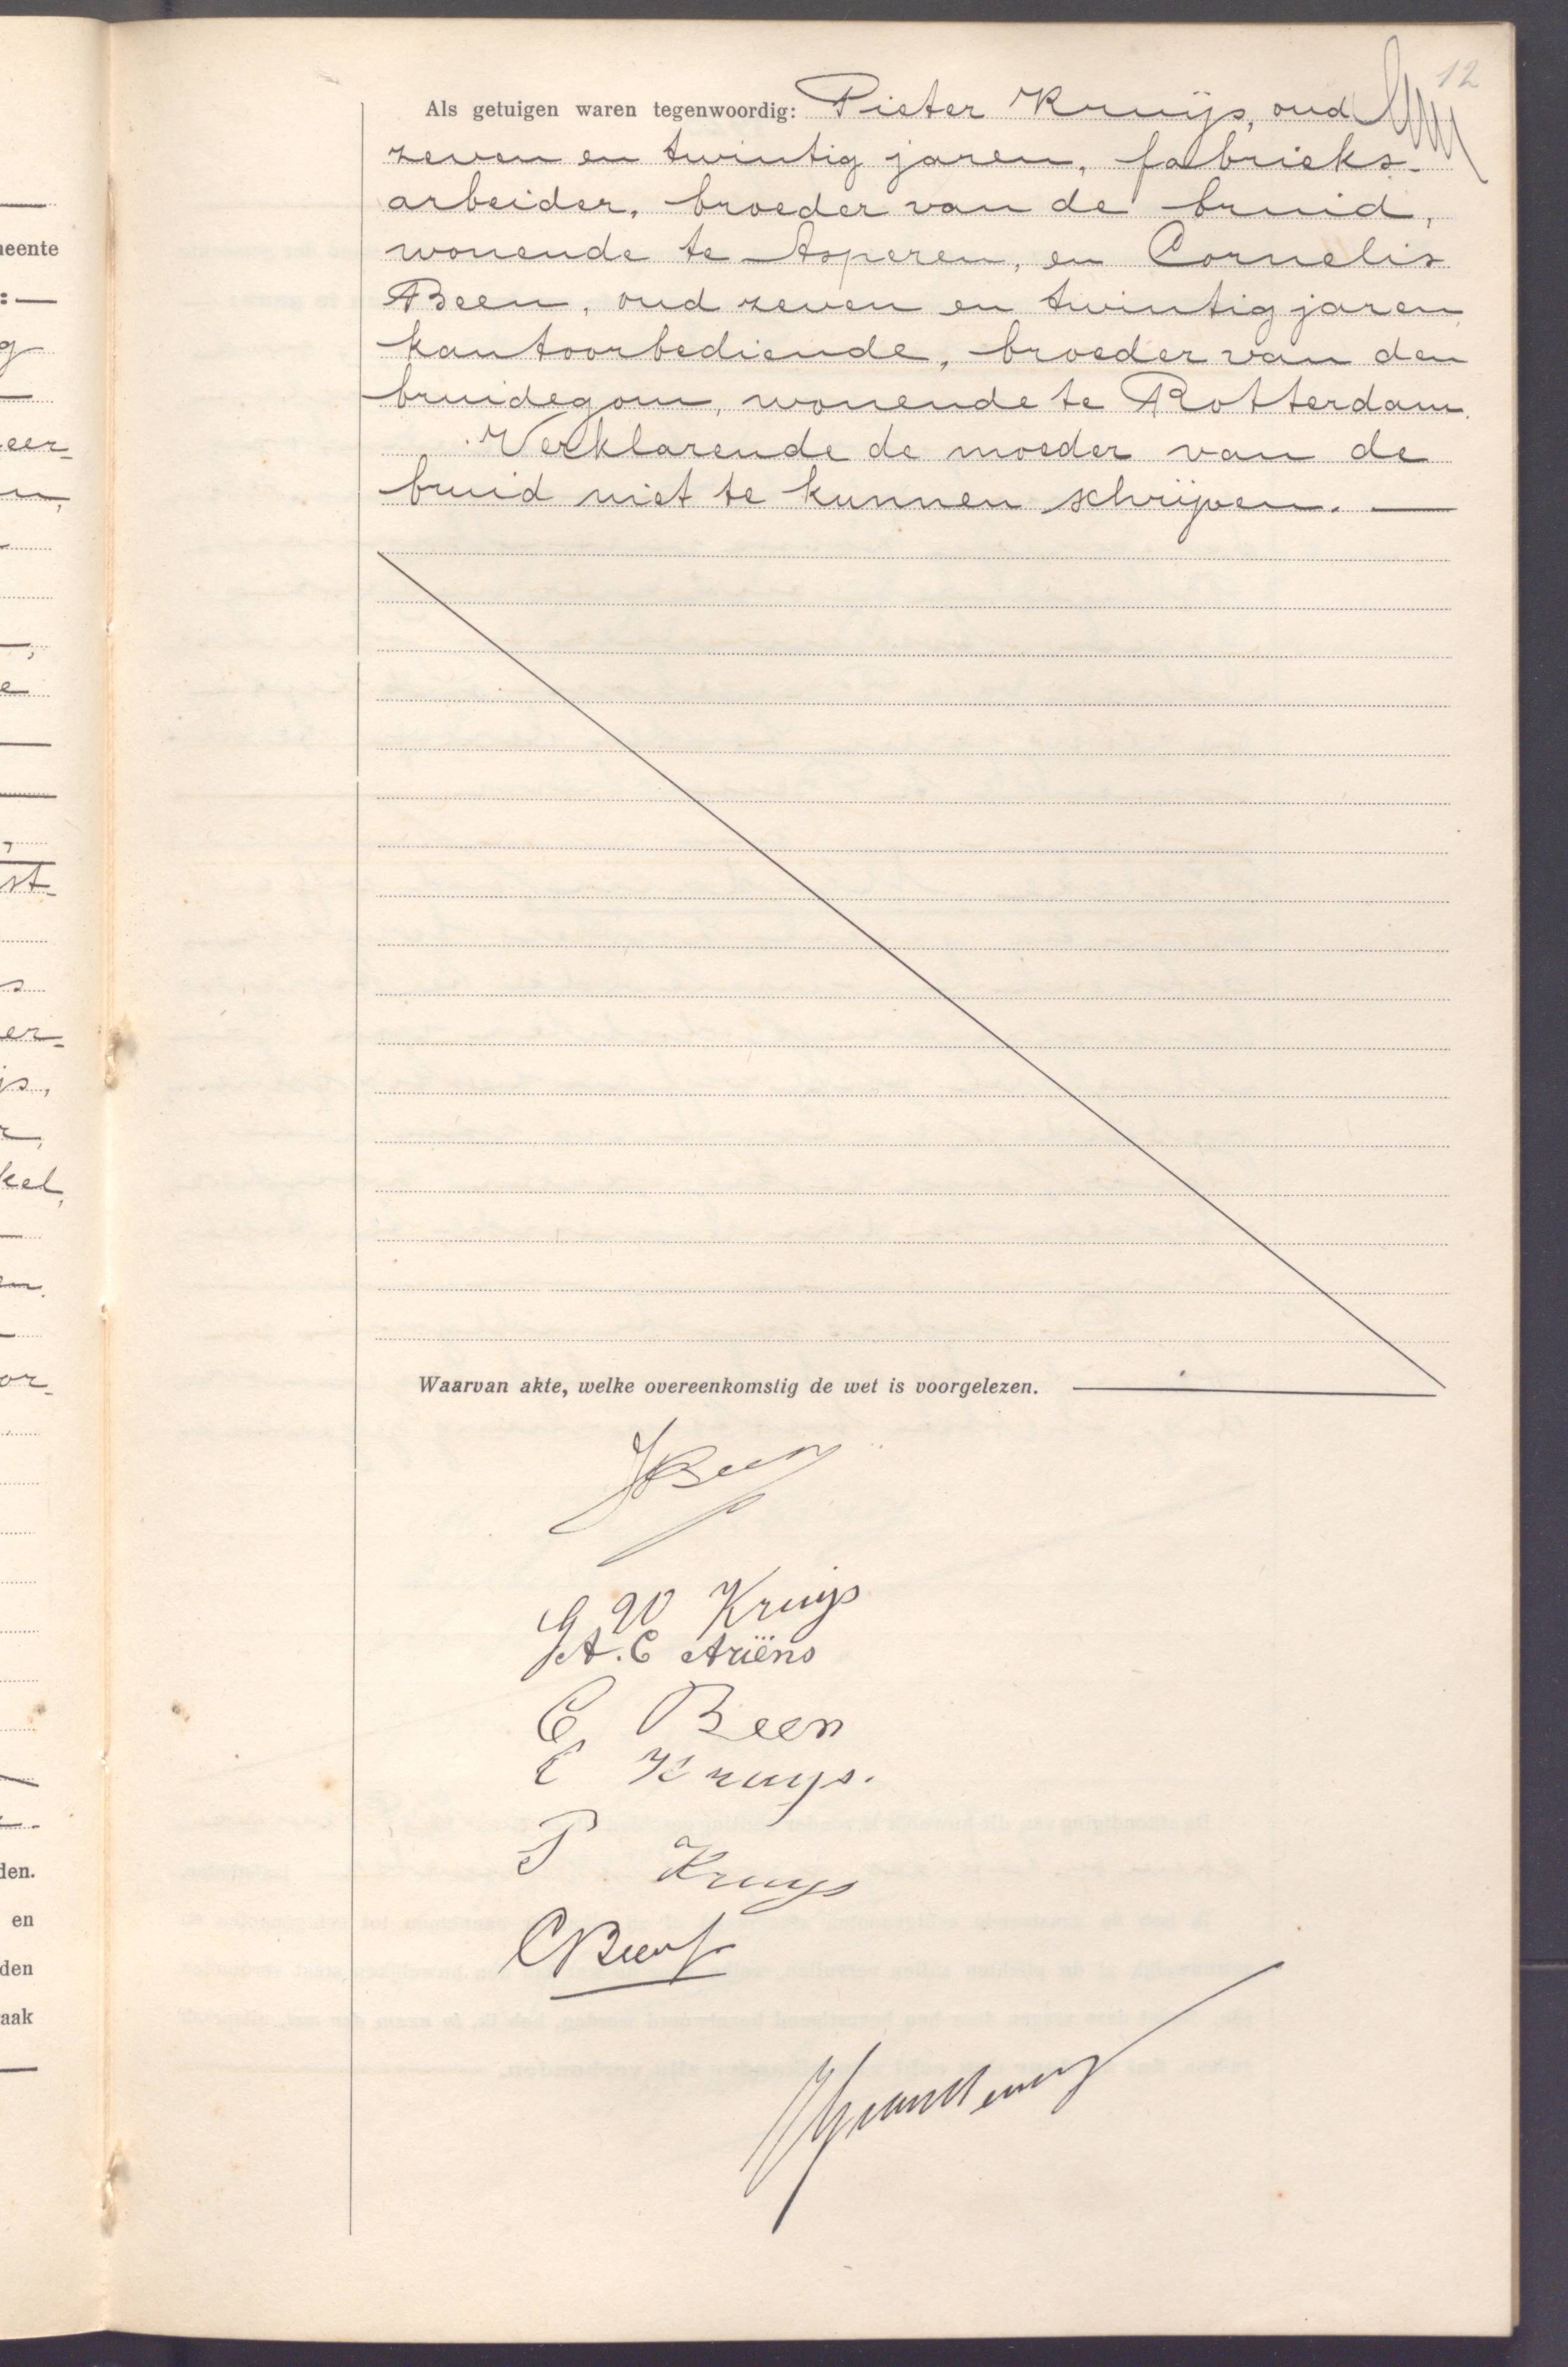 12
Als getuigen waren tegenwoordig: Pieter Kruijs, oud
zeven en twintig jaren, fabrieks-
arbeider, broeder van de bruid,
wonende te Asperen, en Cornelis
Been, oud zeven en twintig jaren,
kantoorbediende, broeder van den
bruidegom, wonende te Rotterdam.
Verklarende de moeder van de
bruid niet te kunnen schrijven. —
Waarvan akte, welke overeenkomstig de wet is voorgelezen. —
JBeen
G W Kruijs
A. C Ariëns
C Been
C Kruys.
P Kruys
CBeen
neente
: —
g
eer-
e
st-
s
er-
js,
kel,
or-
den.
en
den
aak